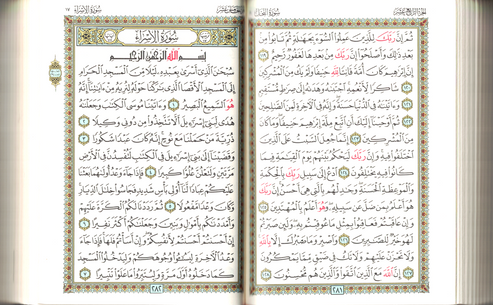 الجزء الرابع عشر
سورة النحل
ثُمَّ إِنَّ رَبَّكَ لِلَّذِينَ عَمِلُوا۟ السُّوٓءَ بِجَهَٰلَةٍ ثُمَّ تَابُوا۟ مِنۢ
بَعْدِ ذَٰلِكَ وَأَصْلَحُوٓا۟ إِنَّ رَبَّكَ مِنۢ بَعْدِهَا لَغَفُورٌ رَّحِيمٌ ١١٩
إِنَّ إِبْرَٰهِيمَ كَانَ أُمَّةً قَانِتًا لِّلَّهِ حَنِيفًا وَلَمْ يَكُ مِنَ الْمُشْرِكِينَ
١٢٠ شَاكِرًا لِّأَنْعُمِهِ اجْتَبَىٰهُ وَهَدَىٰهُ إِلَىٰ صِرَٰطٍ مُّسْتَقِيمٍ
١٢١ وَءَاتَيْنَٰهُ فِي الدُّنْيَا حَسَنَةً وَإِنَّهُ فِي الْءَاخِرَةِ لَمِنَ الصَّٰلِحِينَ
١٢٢ ثُمَّ أَوْحَيْنَآ إِلَيْكَ أَنِ اتَّبِعْ مِلَّةَ إِبْرَٰهِيمَ حَنِيفًا وَمَا كَانَ
مِنَ الْمُشْرِكِينَ ١٢٣ إِنَّمَا جُعِلَ السَّبْتُ عَلَى الَّذِينَ
اخْتَلَفُوا۟ فِيهِ وَإِنَّ رَبَّكَ لَيَحْكُمُ بَيْنَهُمْ يَوْمَ الْقِيَٰمَةِ فِيمَا
كَانُوا۟ فِيهِ يَخْتَلِفُونَ ١٢٤ ادْعُ إِلَىٰ سَبِيلِ رَبِّكَ بِالْحِكْمَةِ
وَالْمَوْعِظَةِ الْحَسَنَةِ وَجَٰدِلْهُم بِالَّتِي هِيَ أَحْسَنُ إِنَّ رَبَّكَ
هُوَ أَعْلَمُ بِمَن ضَلَّ عَن سَبِيلِهِ وَهُوَ أَعْلَمُ بِالْمُهْتَدِينَ ١٢٥
وَإِنْ عَاقَبْتُمْ فَعَاقِبُوا۟ بِمِثْلِ مَا عُوقِبْتُم بِهِ وَلَئِن صَبَرْتُمْ
لَهُوَ خَيْرٌ لِّلصَّٰبِرِينَ ١٢٦ وَاصْبِرْ وَمَا صَبْرُكَ إِلَّا بِاللَّهِ
وَلَا تَحْزَنْ عَلَيْهِمْ وَلَا تَكُ فِي ضَيْقٍ مِّمَّا يَمْكُرُونَ
١٢٧ إِنَّ اللَّهَ مَعَ الَّذِينَ اتَّقَوا۟ وَّالَّذِينَ هُم مُّحْسِنُونَ ١٢٨
٢٨١
سورة الإسراء
١٧
سُورَةُ الإِسْرَاءِ
بِسْمِ اللَّهِ الرَّحْمَٰنِ الرَّحِيمِ
سُبْحَٰنَ الَّذِيٓ أَسْرَىٰ بِعَبْدِهِ لَيْلًا مِّنَ الْمَسْجِدِ الْحَرَامِ
إِلَى الْمَسْجِدِ الْأَقْصَا الَّذِي بَٰرَكْنَا حَوْلَهُ لِنُرِيَهُ مِنْ ءَايَٰتِنَآ إِنَّهُ
هُوَ السَّمِيعُ الْبَصِيرُ ١ وَءَاتَيْنَا مُوسَى الْكِتَٰبَ وَجَعَلْنَٰهُ
هُدًى لِّبَنِيٓ إِسْرَٰٓءِيلَ أَلَّا تَتَّخِذُوا۟ مِن دُونِي وَكِيلًا ٢
ذُرِّيَّةَ مَنْ حَمَلْنَا مَعَ نُوحٍ إِنَّهُ كَانَ عَبْدًا شَكُورًا ٣
وَقَضَيْنَآ إِلَىٰ بَنِيٓ إِسْرَٰٓءِيلَ فِي الْكِتَٰبِ لَتُفْسِدُنَّ فِي الْأَرْضِ
مَرَّتَيْنِ وَلَتَعْلُنَّ عُلُوًّا كَبِيرًا ٤ فَإِذَا جَآءَ وَعْدُ أُولَىٰهُمَا بَعَثْنَا
عَلَيْكُمْ عِبَادًا لَّنَآ أُو۟لِي بَأْسٍ شَدِيدٍ فَجَاسُوا۟ خِلَٰلَ الدِّيَارِ
وَكَانَ وَعْدًا مَّفْعُولًا ٥ ثُمَّ رَدَدْنَا لَكُمُ الْكَرَّةَ عَلَيْهِمْ
وَأَمْدَدْنَٰكُم بِأَمْوَٰلٍ وَبَنِينَ وَجَعَلْنَٰكُمْ أَكْثَرَ نَفِيرًا ٦
إِنْ أَحْسَنتُمْ أَحْسَنتُمْ لِأَنفُسِكُمْ وَإِنْ أَسَأْتُمْ فَلَهَا فَإِذَا جَآءَ
وَعْدُ الْءَاخِرَةِ لِيَسُۥٓـُٔوا۟ وُجُوهَكُمْ وَلِيَدْخُلُوا۟ الْمَسْجِدَ
كَمَا دَخَلُوهُ أَوَّلَ مَرَّةٍ وَلِيُتَبِّرُوا۟ مَا عَلَوْا۟ تَتْبِيرًا ٧
٢٨٢